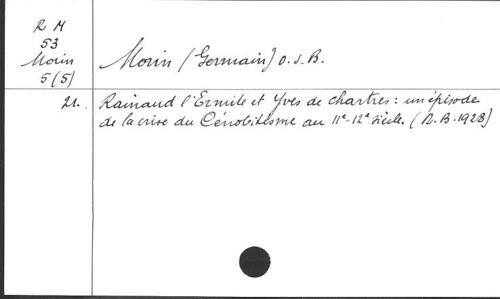 R M
53
Morin
5(5)
Morin (Germain) O.S.B.
21. Rainaud l'Ermite et Yves de Chartres : un épisode
de la crise du Cénobitisme au 11e-12e siècle. (R.B.1928)